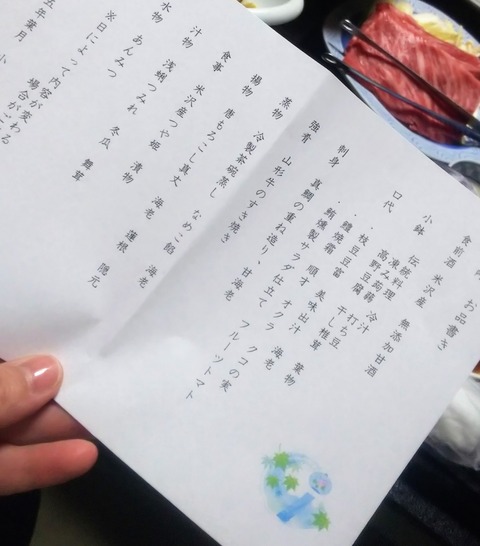 お品書き
食前酒 米沢産 無添加甘酒
小鉢 伝統料理 冷汁 葉物
凍み蒟蒻 打ち豆 干し椎茸
高野豆腐
口代 ・枝豆豆腐 美味出汁 海老 クコの実
・鱧焼霜 順才 オクラ フルーツトマト
・鮪燻製サラダ仕立て
刺身 真鯛の重ね造り、甘海老
強肴 山形牛のすき焼き
蒸物 冷製茶碗蒸し なめこ餡 海老
揚物 唐もろこし真丈 海老 蓮根 隠元
食事 米沢産つや姫 漬物
汁物 浅蜊つみれ 冬瓜 舞茸
水物 あんみつ
※日によって内容が変わる
場合がござ
五年葉月 小